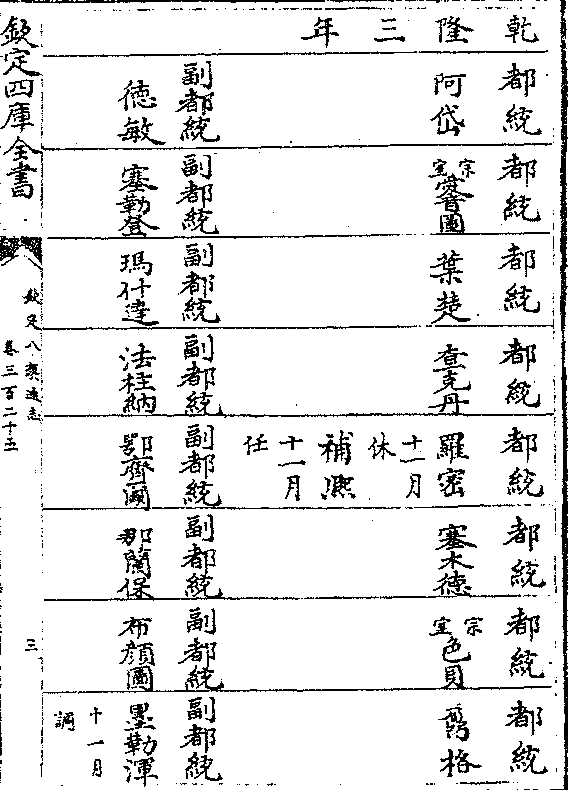 乾隆三年
都統
阿岱
副都統
德敏
都統
宗室愛音圖
副都統
塞勒登
都統
葉楚
副都統
瑪什達
都統
查克丹
副都統
法柱納
都統
羅密
十一月
休
補熙
十一月
任
副都統
鄂齊
都統
塞木德
副都統
那蘭保
都統
宗室色貝
副都統
布顏圖
都統
格
副都統
墨勒渾
十一月
調
欽定四庫全書
欽定八旗通志
卷三百二十五
三